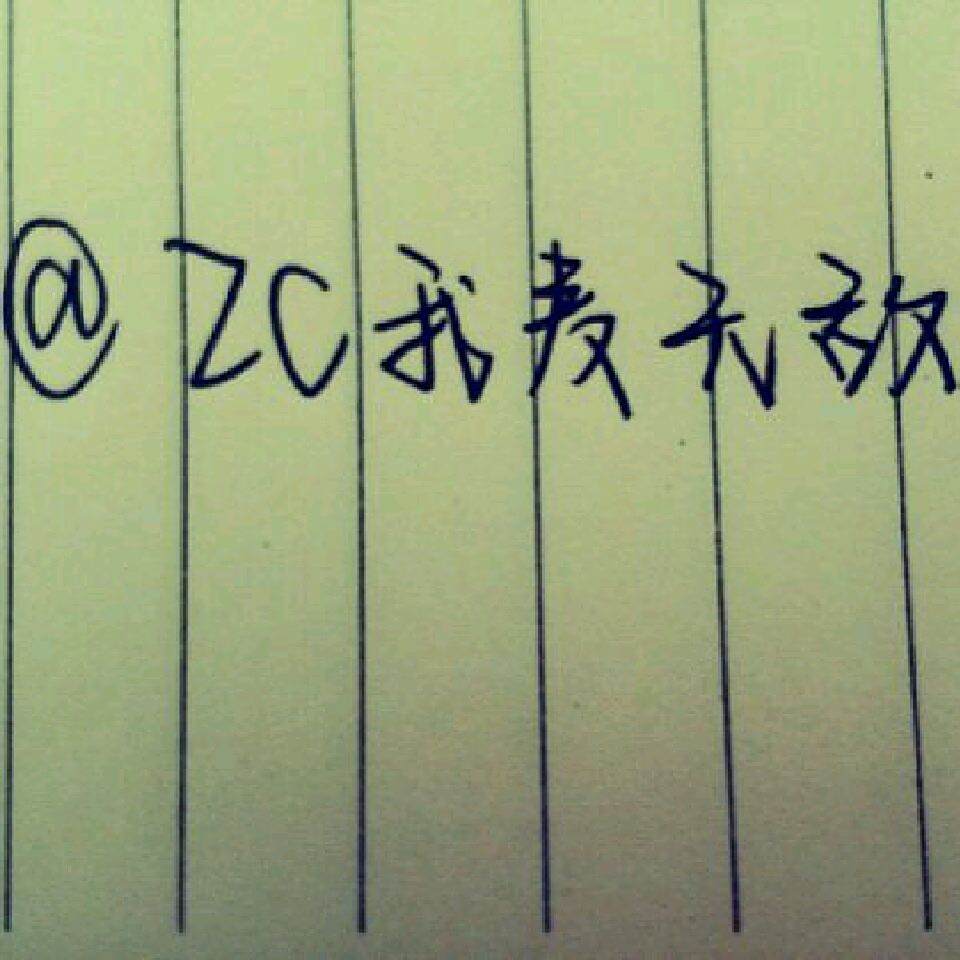 @ZC我最无敌